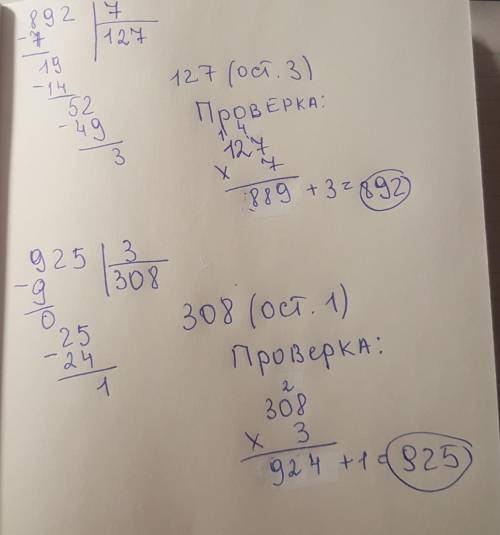 892 | 7
- 7 | 127
19
- 14
52
- 49
3
127 (ост. 3)
Проверка:
1 4
127
x 7
889 + 3 = 892
925 | 3
- 9 | 308
0
25
- 24
1
308 (ост. 1)
Проверка:
2
308
x 3
924 + 1 = 925